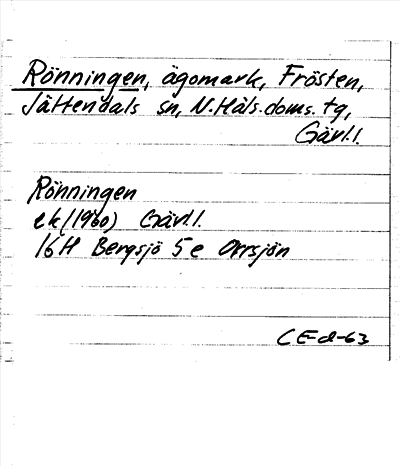 Rönningen, ägomark, Frösten,
Jättendals sn, N.Häls.doms.tg,
Gävl.l.
Rönningen
ek (1960) Gävl.l.
16H Bergsjö 5e Orrsjön
CE-d-63